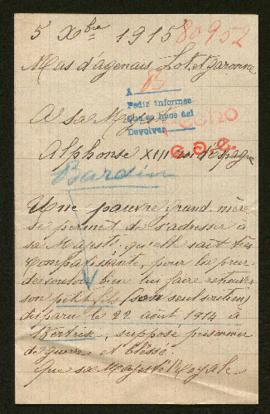 5 Xbre 1915 80952
Mas d'agenais, Lot et Garonne
A B
Pedir informes
Devolver
A Sa Majesté
C.D.C.
Alphonse XIII roi d'Espagne
Bardin
Une pauvre grand mère
se permet de s'adresser à
sa Majesté, qu'elle sait très
compatissante, pour la prier
de vouloir bien lui faire retrouver
son petit fils son seul soutien
disparu le 22 août 1914 à
Bertrix, supposé prisonnier
de guerre et blessé.
Que sa Majesté Royale